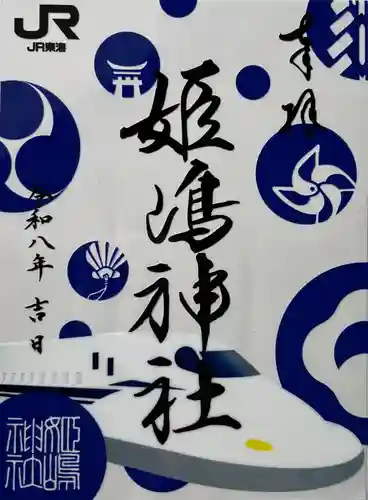 JR
JR東海
奉拝
姫嶋神社
令和八年 吉日
姫嶋
神社